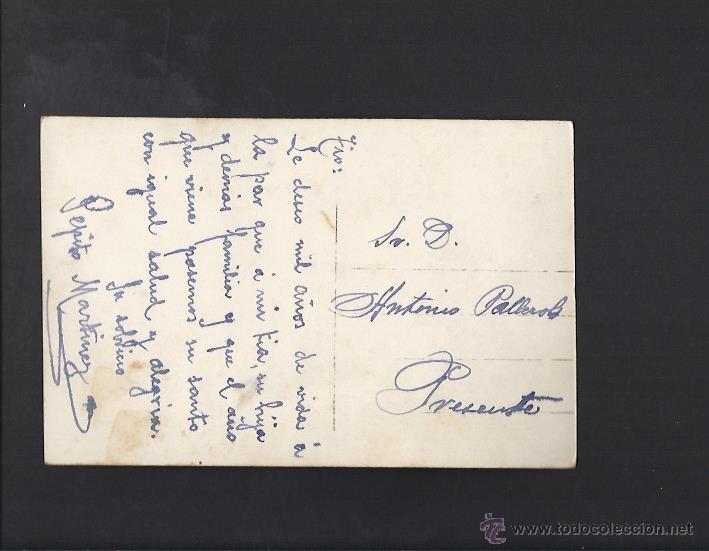 Tío:
Le deseo mil años de vida á
la par que a mi tia, su hija
y demas familia y que el año
que viene pasemos su santo
con igual salud y alegria.
Su sobrino
Pepito Martinez
Sr. D.
Antonio Pallerols
Presente
todocoleccion
www.todocoleccion.net